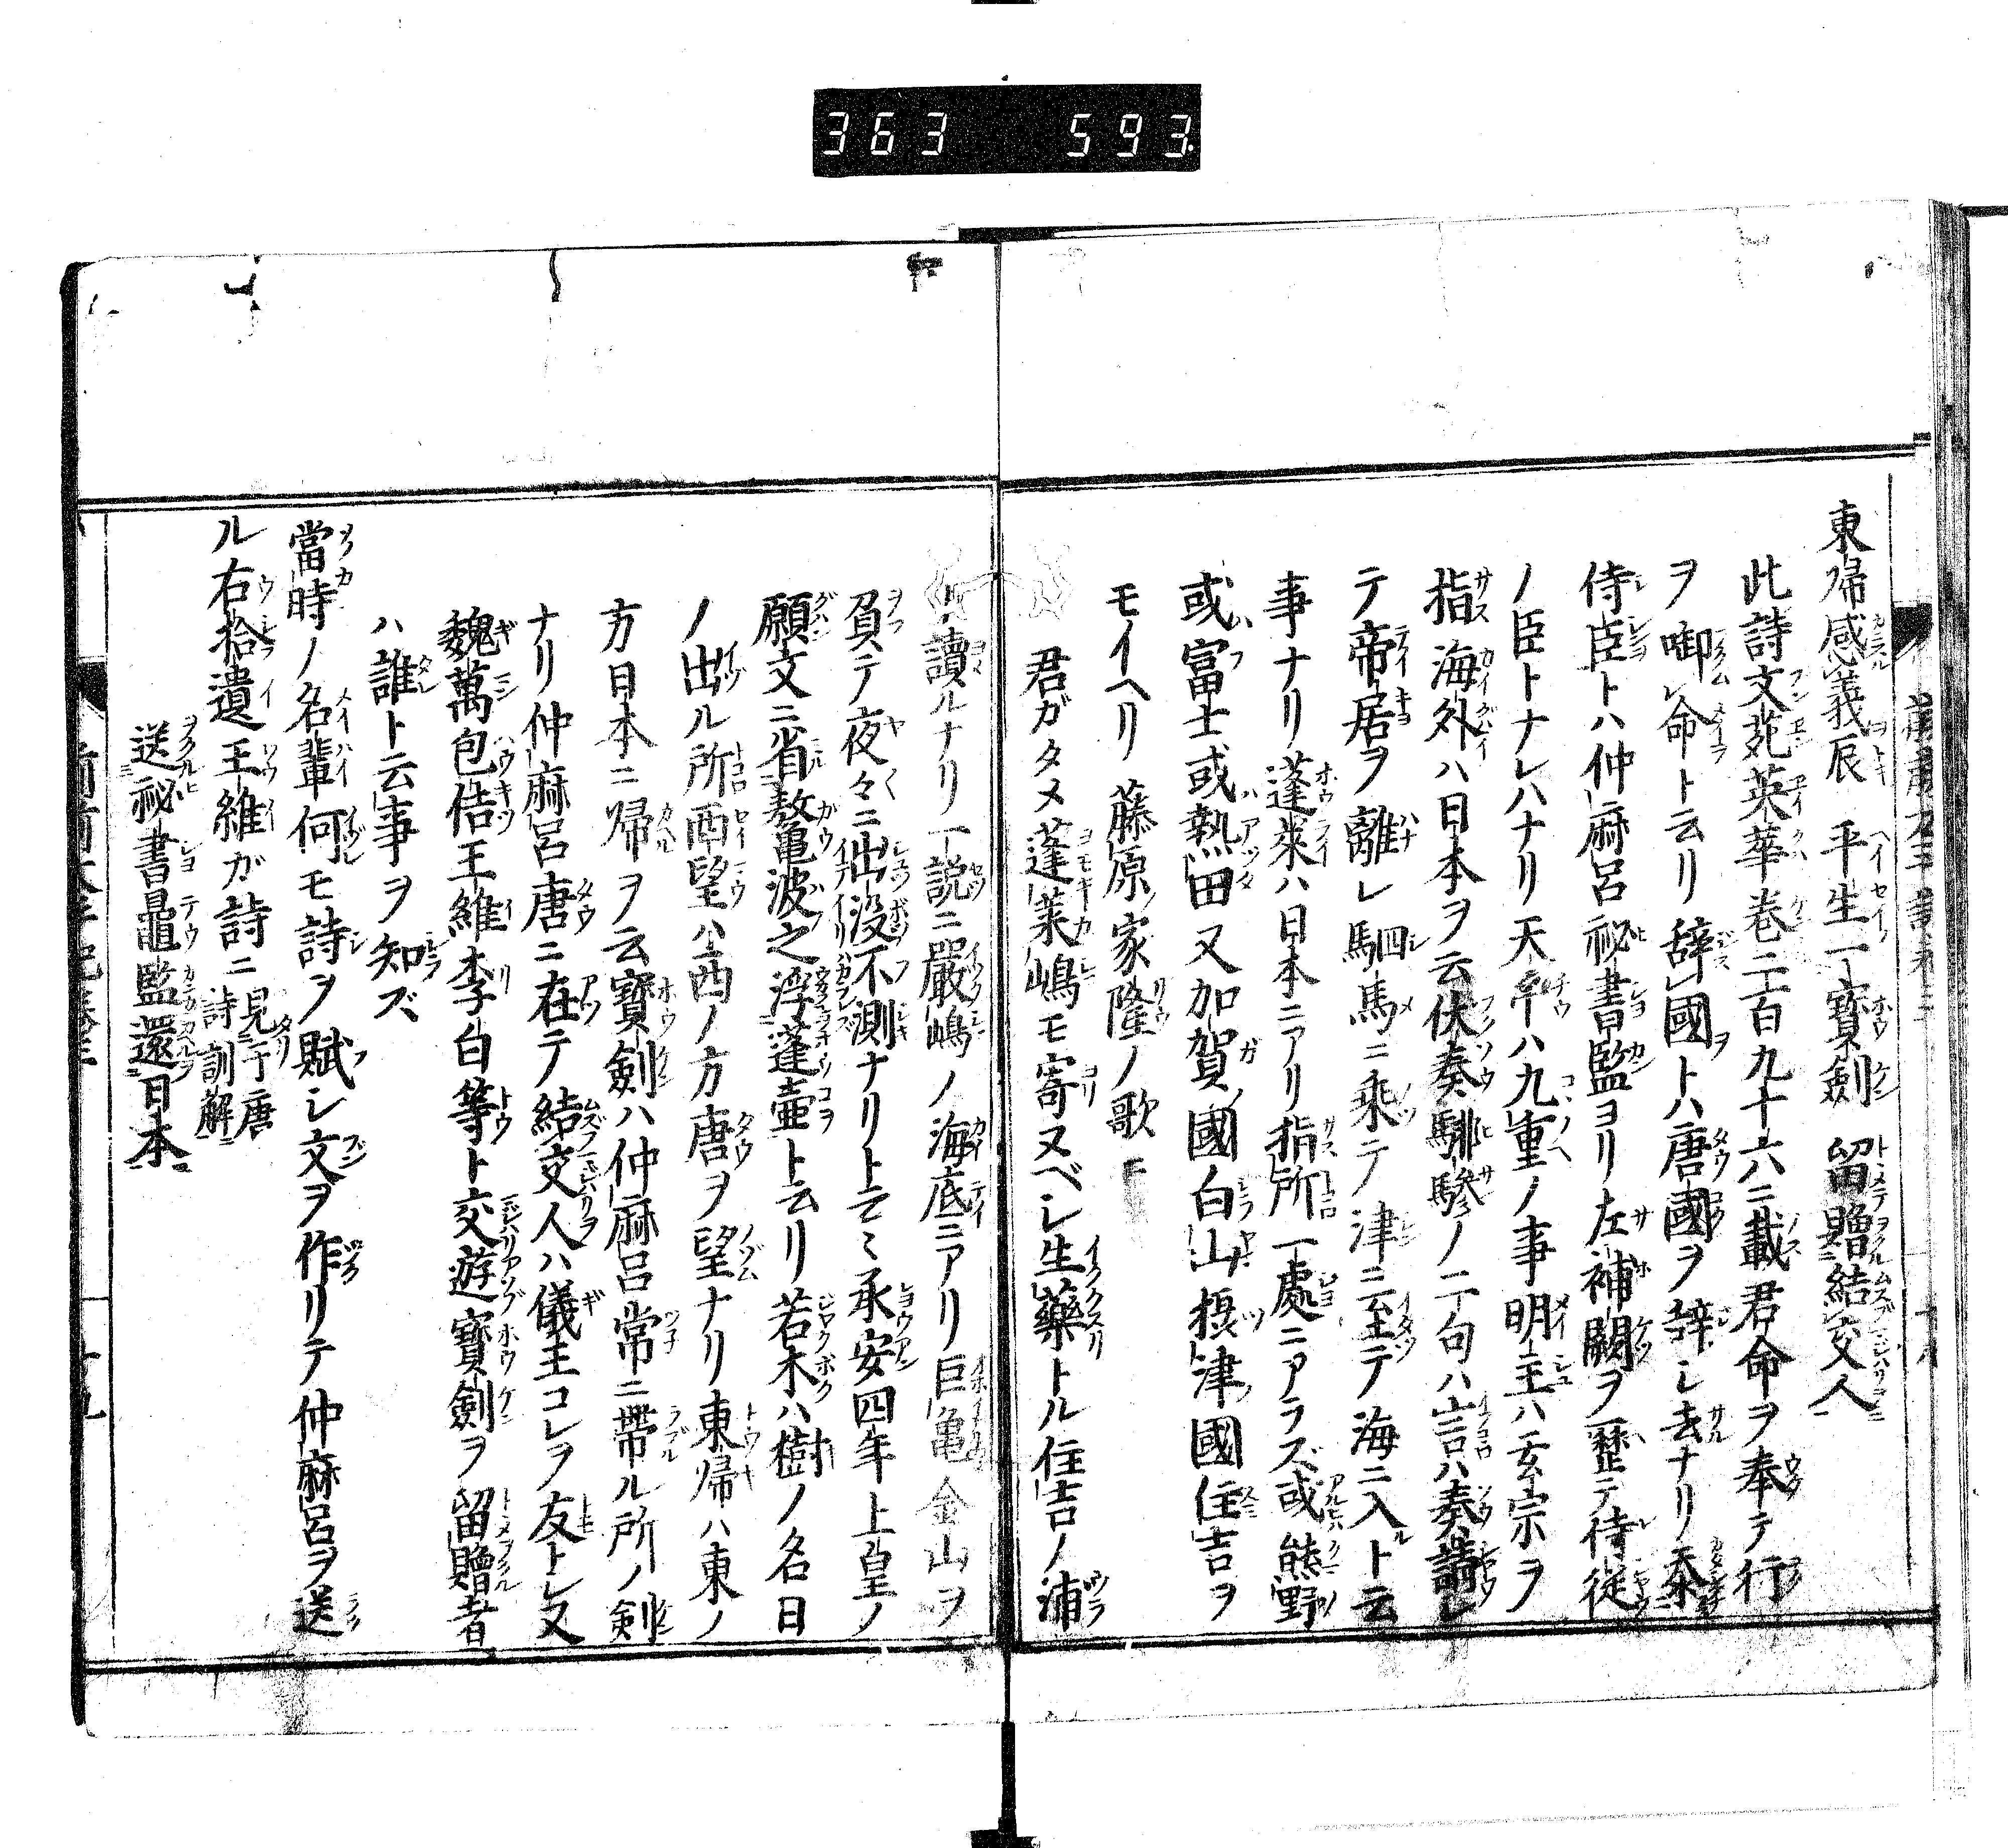 363 593
東帰感義辰 平生一寳劍 留贈結交人
此詩文苑英華巻二百九十六ニ載君命ヲ奉テ行
ヲ啣命ト云リ辞國トハ唐國ヲ辞シ去ナリ忝
侍臣トハ仲麻呂祕書監ヨリ左補闕ヲ歴テ侍従
ノ臣トナレハナリ天中ハ九重ノ事明主ハ玄宗ヲ
指海外ハ日本ヲ云伏奏騑驂ノ二句ハ言ハ奏請シ
テ帝居ヲ離レ駟馬ニ乗テ津ニ至テ海ニ入ト云
事ナリ蓬莱ハ日本ニアリ指所一處ニアラズ或熊野
或富士或熱田又加賀國白山摂津國住吉ヲ
モイヘリ藤原家隆ノ歌
君ガタメ蓬莱嶋モ寄ヌベシ生藥トル住吉ノ浦
ト讀ルナリ一説ニ嚴嶋ノ海底ニアリ巨亀金山ヲ
負テ夜々ニ出没不測ナリト云々承安四年上皇ノ
願文ニ省敖亀波之浮蓬壷ト云リ若木ハ樹ノ名日
ノ出ル所西望ハ西ノ方唐ヲ望ナリ東帰ハ東ノ
方日本ニ帰ヲ云寳劍ハ仲麻呂常ニ帶ル所ノ剣
ナリ仲麻呂唐ニ在テ結交人ハ儀王コレヲ友トシ又
魏萬包佶王維李白等ト交遊寳劍ヲ留贈者
ハ誰ト云事ヲ知ズ
當時ノ名輩何モ詩ヲ賦シ文ヲ作リテ仲麻呂ヲ送
ル右拾遺王維ガ詩ニ見于唐詩訓解
送祕書鼂監還日本